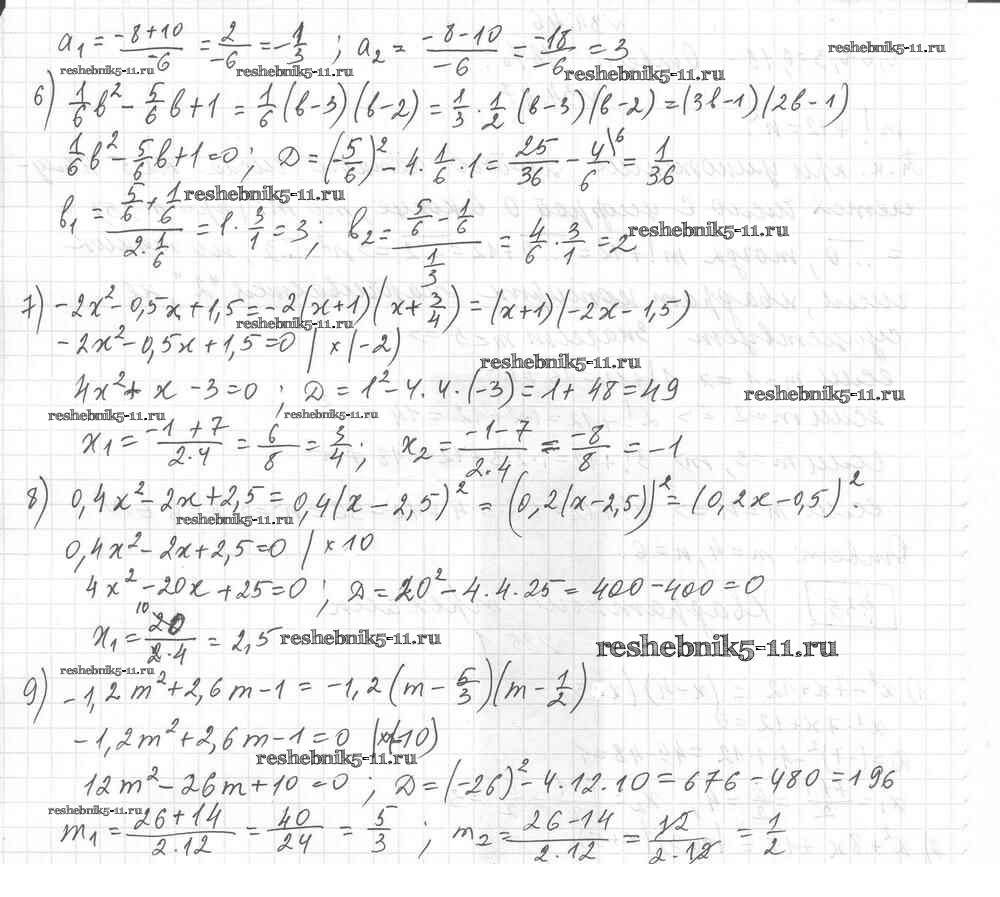 a₁ = (-8+10)/(-6) = 2/(-6) = -1/3 ; a₂ = (-8-10)/(-6) = (-18)/(-6) = 3
reshebnik5-11.ru
reshebnik5-11.ru reshebnik5-11.ru reshebnik5-11.ru
6) 1/6 b² - 5/6 b + 1 = 1/6 (b-3)(b-2) = 1/3 · 1/2 (b-3)(b-2) = (3b-1)(2b-1)
1/6 b² - 5/6 b + 1 = 0 ; D = (-5/6)² - 4 · 1/6 · 1 = 25/36 - 4/6 \⁶ = 1/36
reshebnik5-11.ru
b₁ = (5/6 + 1/6)/(2 · 1/6) = 1 · 3/1 = 3 ; b₂ = (5/6 - 1/6)/(1/3) = 4/6 · 3/1 = 2
reshebnik5-11.ru
7) -2x² - 0,5x + 1,5 = -2(x+1)(x + 3/4) = (x+1)(-2x - 1,5)
reshebnik5-11.ru
-2x² - 0,5x + 1,5 = 0 | × (-2)
reshebnik5-11.ru
4x² + x - 3 = 0 ; D = 1² - 4 · 4 · (-3) = 1 + 48 = 49
reshebnik5-11.ru
reshebnik5-11.ru reshebnik5-11.ru
x₁ = (-1+7)/(2·4) = 6/8 = 3/4 ; x₂ = (-1-7)/(2·4) = (-8)/8 = -1
8) 0,4x² - 2x + 2,5 = 0,4(x - 2,5)² = (0,2(x-2,5))² = (0,2x - 0,5)².
reshebnik5-11.ru
0,4x² - 2x + 2,5 = 0 | × 10
4x² - 20x + 25 = 0 ; D = 20² - 4 · 4 · 25 = 400 - 400 = 0
x₁ = 20 ¹⁰/(2·4) = 2,5
reshebnik5-11.ru reshebnik5-11.ru
reshebnik5-11.ru
9) -1,2m² + 2,6m - 1 = -1,2(m - 5/3)(m - 1/2)
-1,2m² + 2,6m - 1 = 0 | × (-10)
reshebnik5-11.ru
12m² - 26m + 10 = 0 ; D = (-26)² - 4 · 12 · 10 = 676 - 480 = 196
reshebnik5-11.ru
m₁ = (26+14)/(2·12) = 40/24 = 5/3 ; m₂ = (26-14)/(2·12) = 12/(2·12) = 1/2